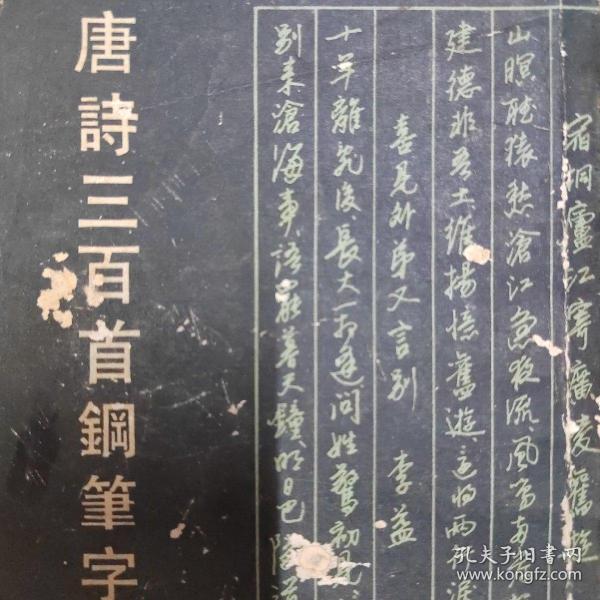 宿桐廬江寄廣陵舊遊
山暝聽猿愁滄江急夜流風鳴兩岸
建德非吾土維揚憶舊遊還將兩行淚
喜見外弟又言別 李益
十年離亂後長大一相逢問姓驚初見
別來滄海事語罷暮天鐘明日巴陵道
唐詩三百首鋼筆字
孔夫子旧书网
www.kongfz.com